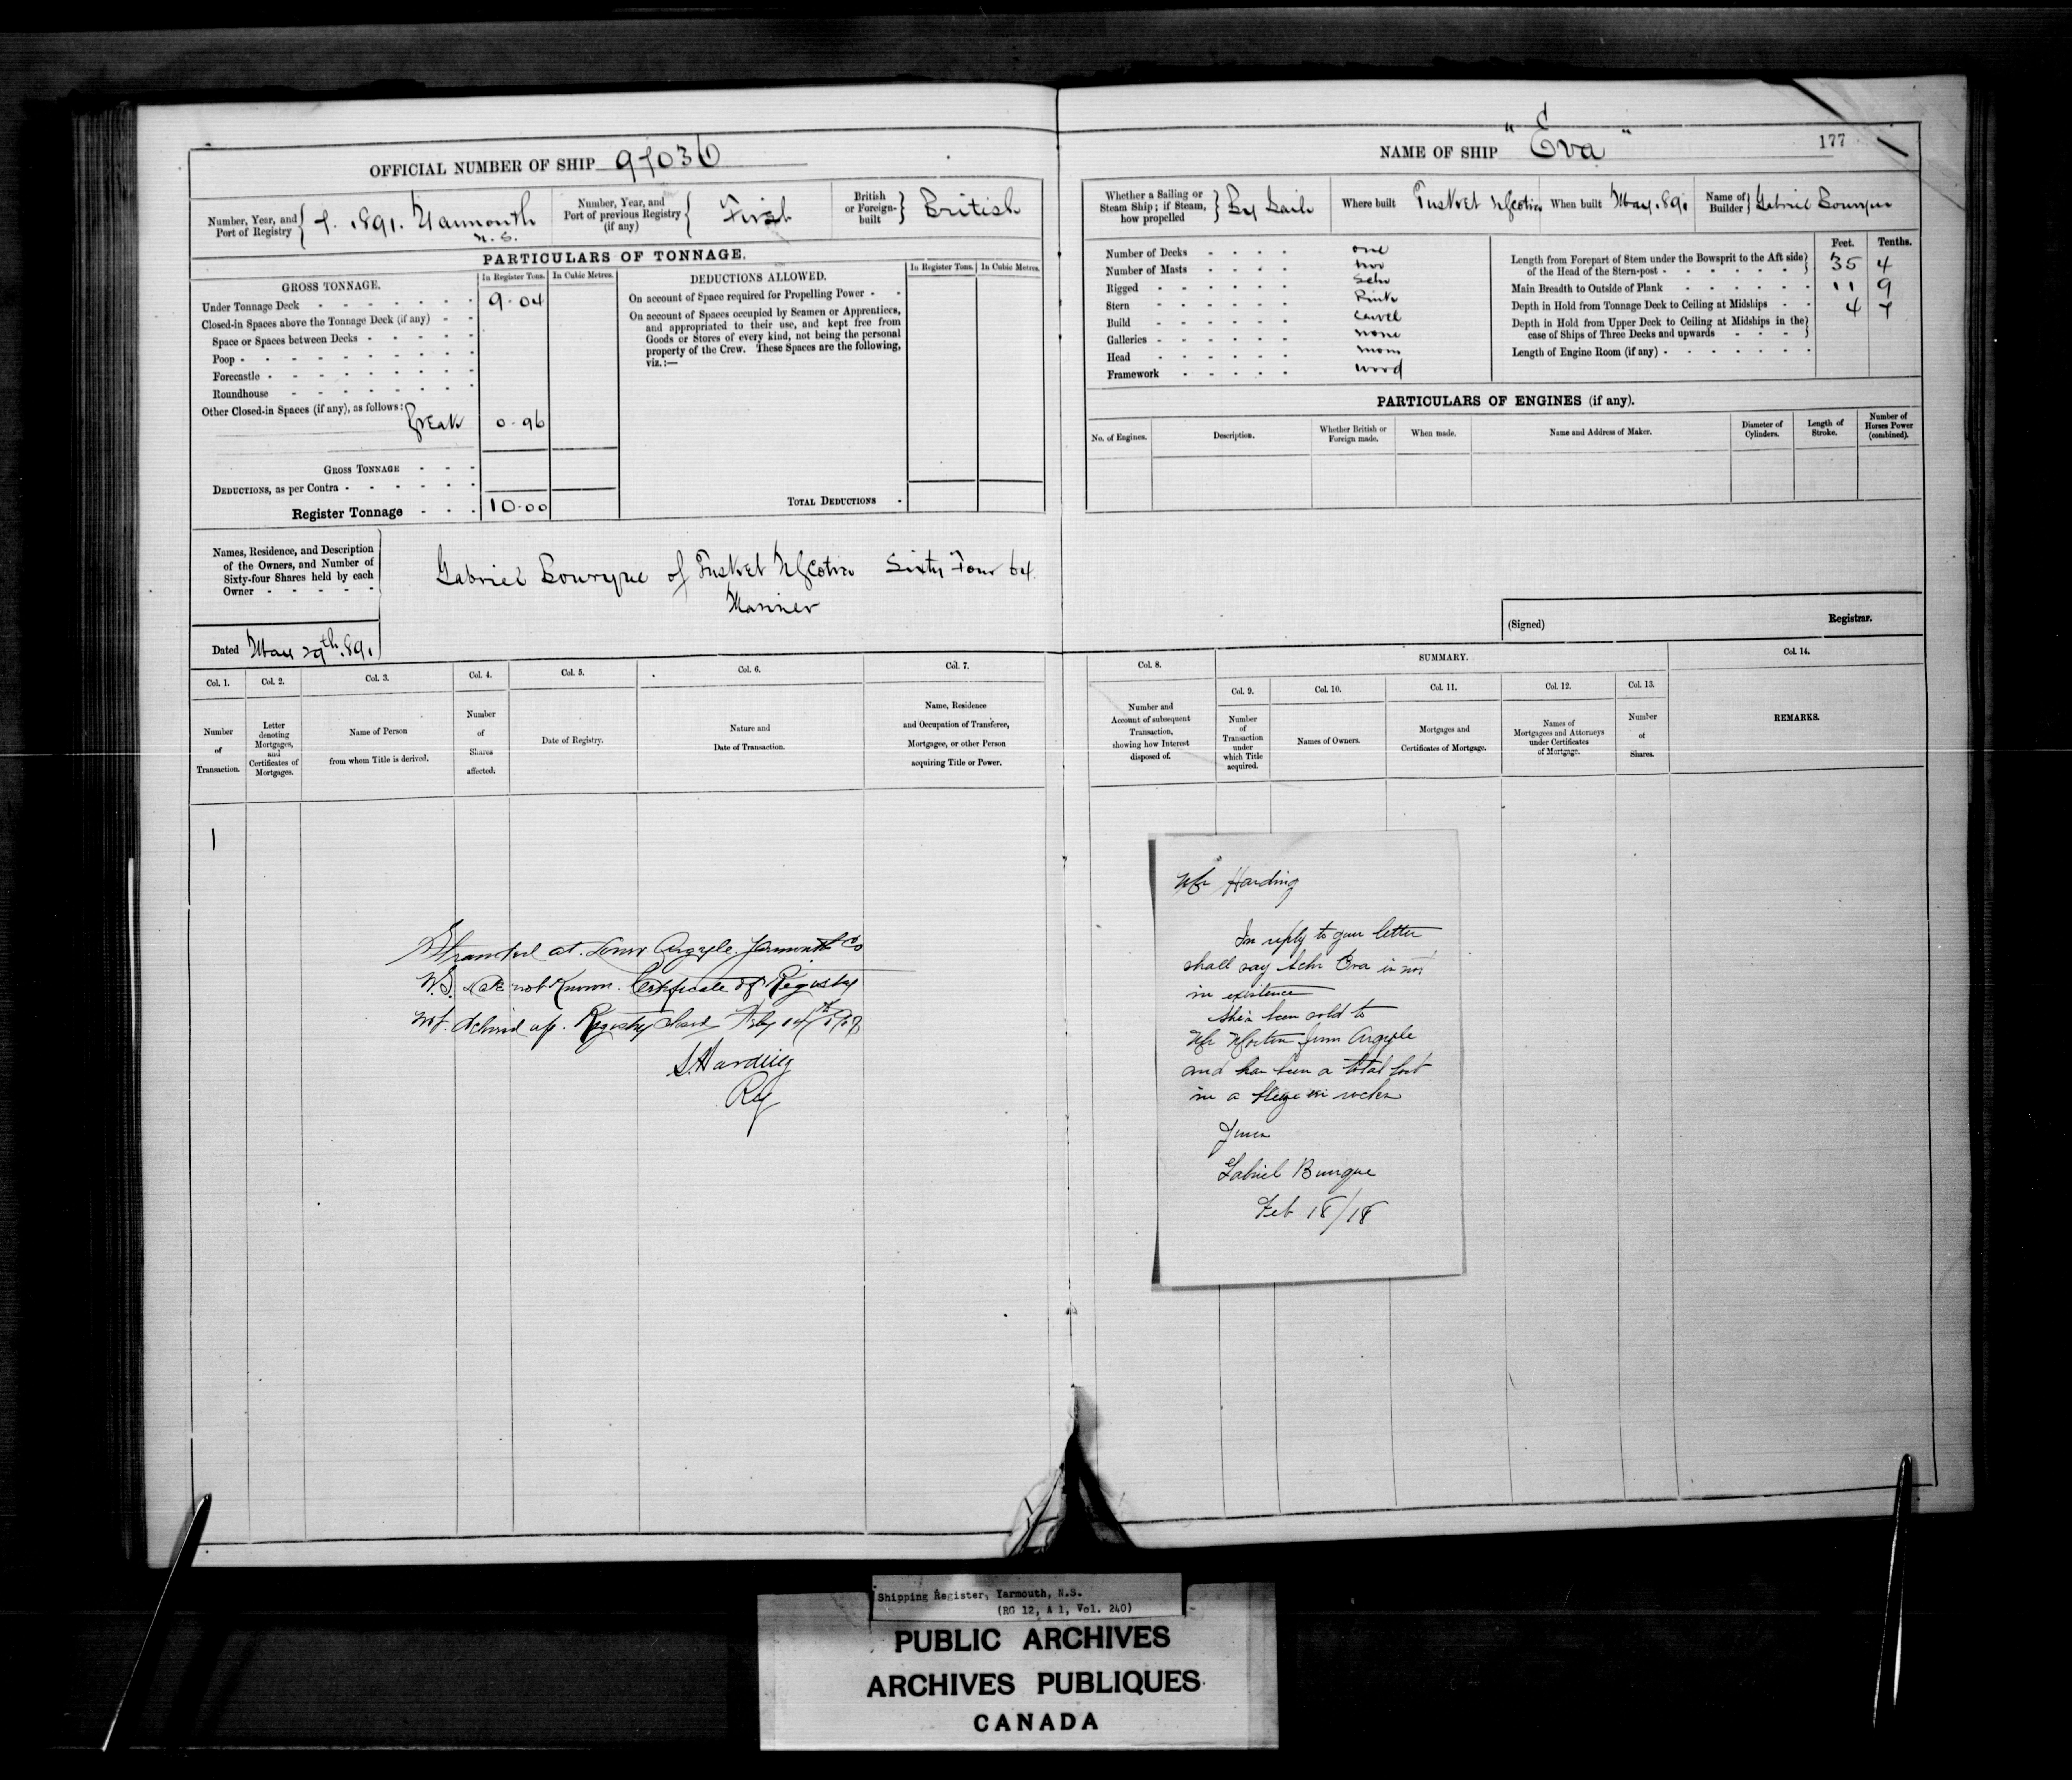 OFFICIAL NUMBER OF SHIP 97030
Number, Year, and Port of Registry { 7. 1891. Yarmouth N.S.
Number, Year, and Port of previous Registry (if any) { First
British or Foreign-built } British
PARTICULARS OF TONNAGE.
GROSS TONNAGE.
In Register Tons. In Cubic Metres.
DEDUCTIONS ALLOWED.
In Register Tons. In Cubic Metres.
Under Tonnage Deck 9.04
Closed-in Spaces above the Tonnage Deck (if any)
Space or Spaces between Decks
Poop
Forecastle
Roundhouse
Other Closed-in Spaces (if any), as follows:
Break 0.96
GROSS TONNAGE
DEDUCTIONS, as per Contra
Register Tonnage 10.00
On account of Space required for Propelling Power
On account of Spaces occupied by Seamen or Apprentices,
and appropriated to their use, and kept free from
Goods or Stores of every kind, not being the personal
property of the Crew. These Spaces are the following,
viz.:—
TOTAL DEDUCTIONS
Names, Residence, and Description
of the Owners, and Number of
Sixty-four Shares held by each
Owner
Gabriel Bourque of Tusket N Scotia Sixty Four 64.
Mariner
Dated May 29th. 1891
Col. 1. Col. 2. Col. 3. Col. 4. Col. 5. Col. 6. Col. 7.
Number of Transaction.
Letter denoting Mortgages, and Certificates of Mortgages.
Name of Person from whom Title is derived.
Number of Shares affected.
Date of Registry.
Nature and Date of Transaction.
Name, Residence and Occupation of Transferee, Mortgagee, or other Person acquiring Title or Power.
1
Stranded at Lower Argyle Yarmouth Co
N.S. date not Known. Certificate of Registry
not delived up. Registry closed Feby 14th
S. Harding
Reg
NAME OF SHIP "Eva"
177
Whether a Sailing or Steam Ship; if Steam, how propelled } By Sail
Where built Tusket N Scotia
When built May. 1891
Name of Builder } Gabriel Bourque
Number of Decks one
Number of Masts two
Rigged Schr
Stern Pink
Build Carvel
Galleries none
Head none
Framework wood
Feet. Tenths.
Length from Forepart of Stem under the Bowsprit to the Aft side
of the Head of the Stern-post 35 4
Main Breadth to Outside of Plank 11 9
Depth in Hold from Tonnage Deck to Ceiling at Midships 4 7
Depth in Hold from Upper Deck to Ceiling at Midships in the
case of Ships of Three Decks and upwards
Length of Engine Room (if any)
PARTICULARS OF ENGINES (if any).
No. of Engines.
Description.
Whether British or Foreign made.
When made.
Name and Address of Maker.
Diameter of Cylinders.
Length of Stroke.
Number of Horses Power (combined).
(Signed) Registrar.
Col. 8. SUMMARY. Col. 14.
Col. 9. Col. 10. Col. 11. Col. 12. Col. 13.
Number and Account of subsequent Transaction, showing how Interest disposed of.
Number of Transaction under which Title acquired.
Names of Owners.
Mortgages and Certificates of Mortgage.
Names of Mortgagees and Attorneys under Certificates of Mortgage.
Number of Shares.
REMARKS.
Mr Harding
In reply to your letter
shall say Schr Eva is not
in existence
She's been sold to
Mr Morton from Argyle
and has been a total lost
in a rocks
Yours
Gabriel Bourque
Feb 18/18
Shipping Register, Yarmouth, N.S.
(RG 12, A 1, Vol. 240)
PUBLIC ARCHIVES
ARCHIVES PUBLIQUES
CANADA